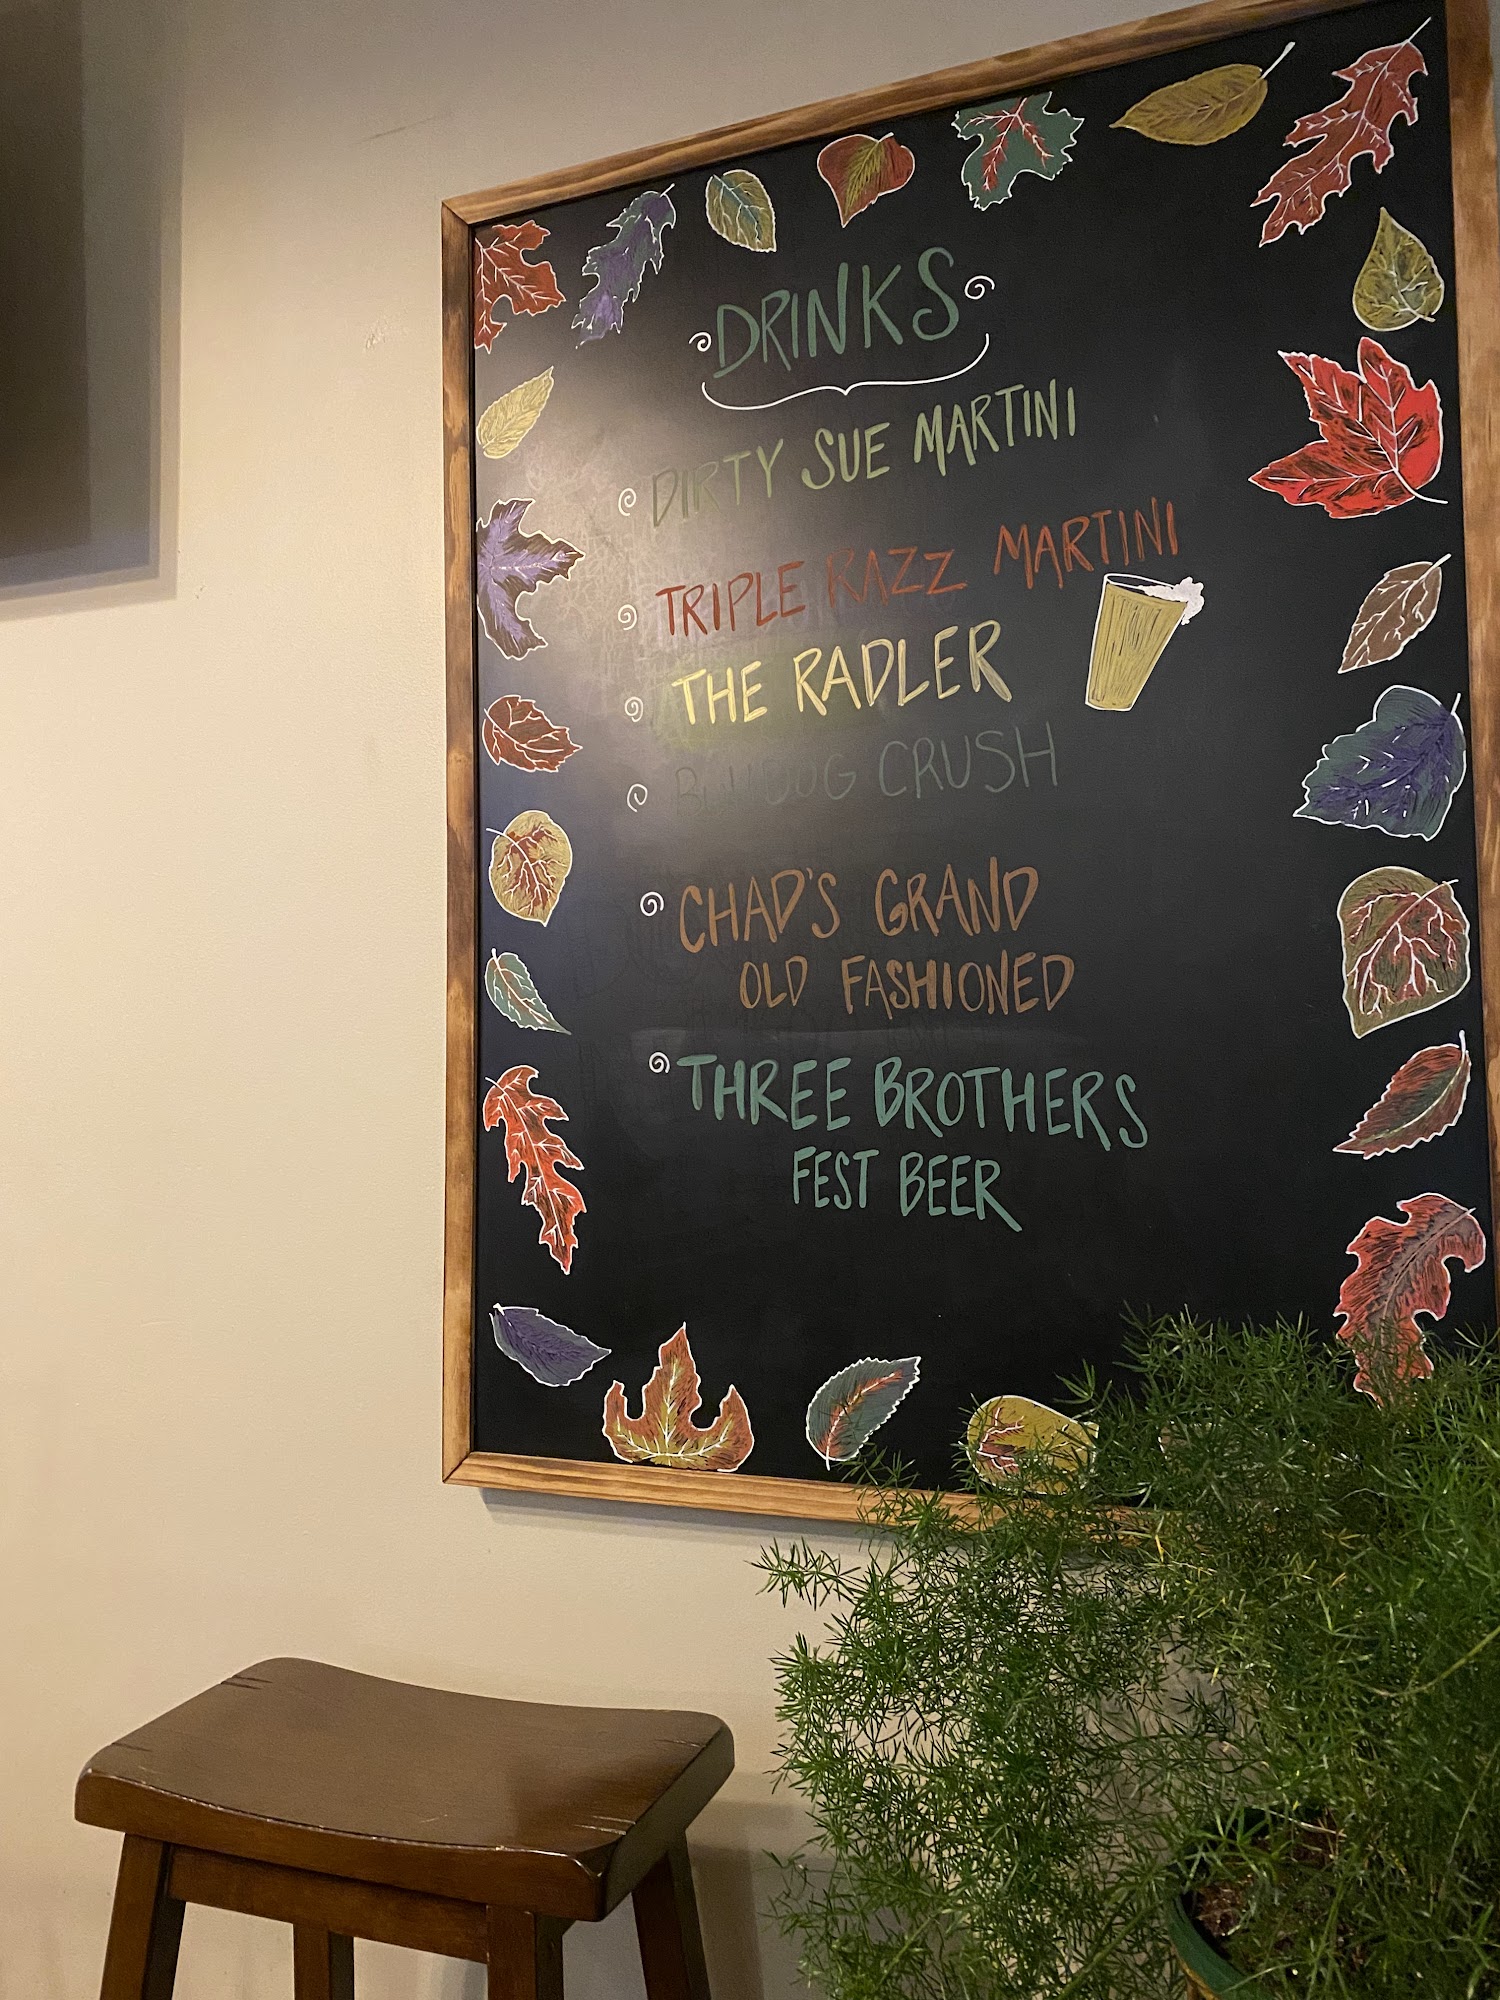 DRINKS
DIRTY SUE MARTINI
TRIPLE RAZZ MARTINI
THE RADLER
BULLDOG CRUSH
CHAD'S GRAND
OLD FASHIONED
THREE BROTHERS
FEST BEER